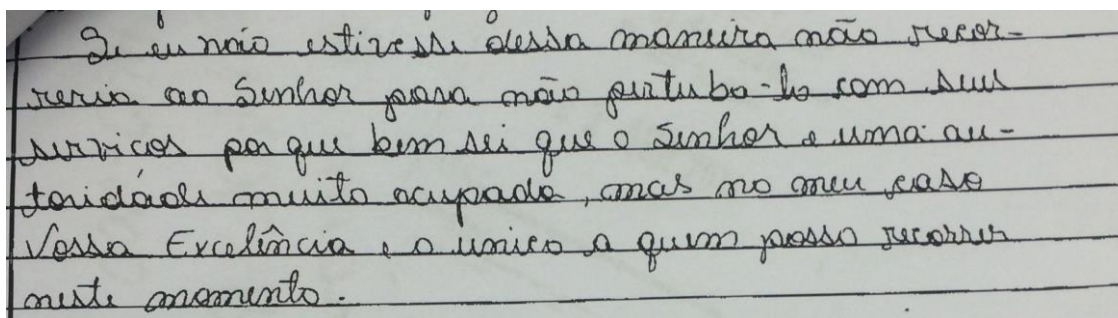 Se eu não estivesse dessa maneira não recor-
reria ao Senhor para não pertuba-lo com seus
serviços por que bem sei que o Senhor e uma au-
toridade muito ocupada, mas no meu caso
Vossa Excelência e o unico a quem posso recorrer
neste momento.